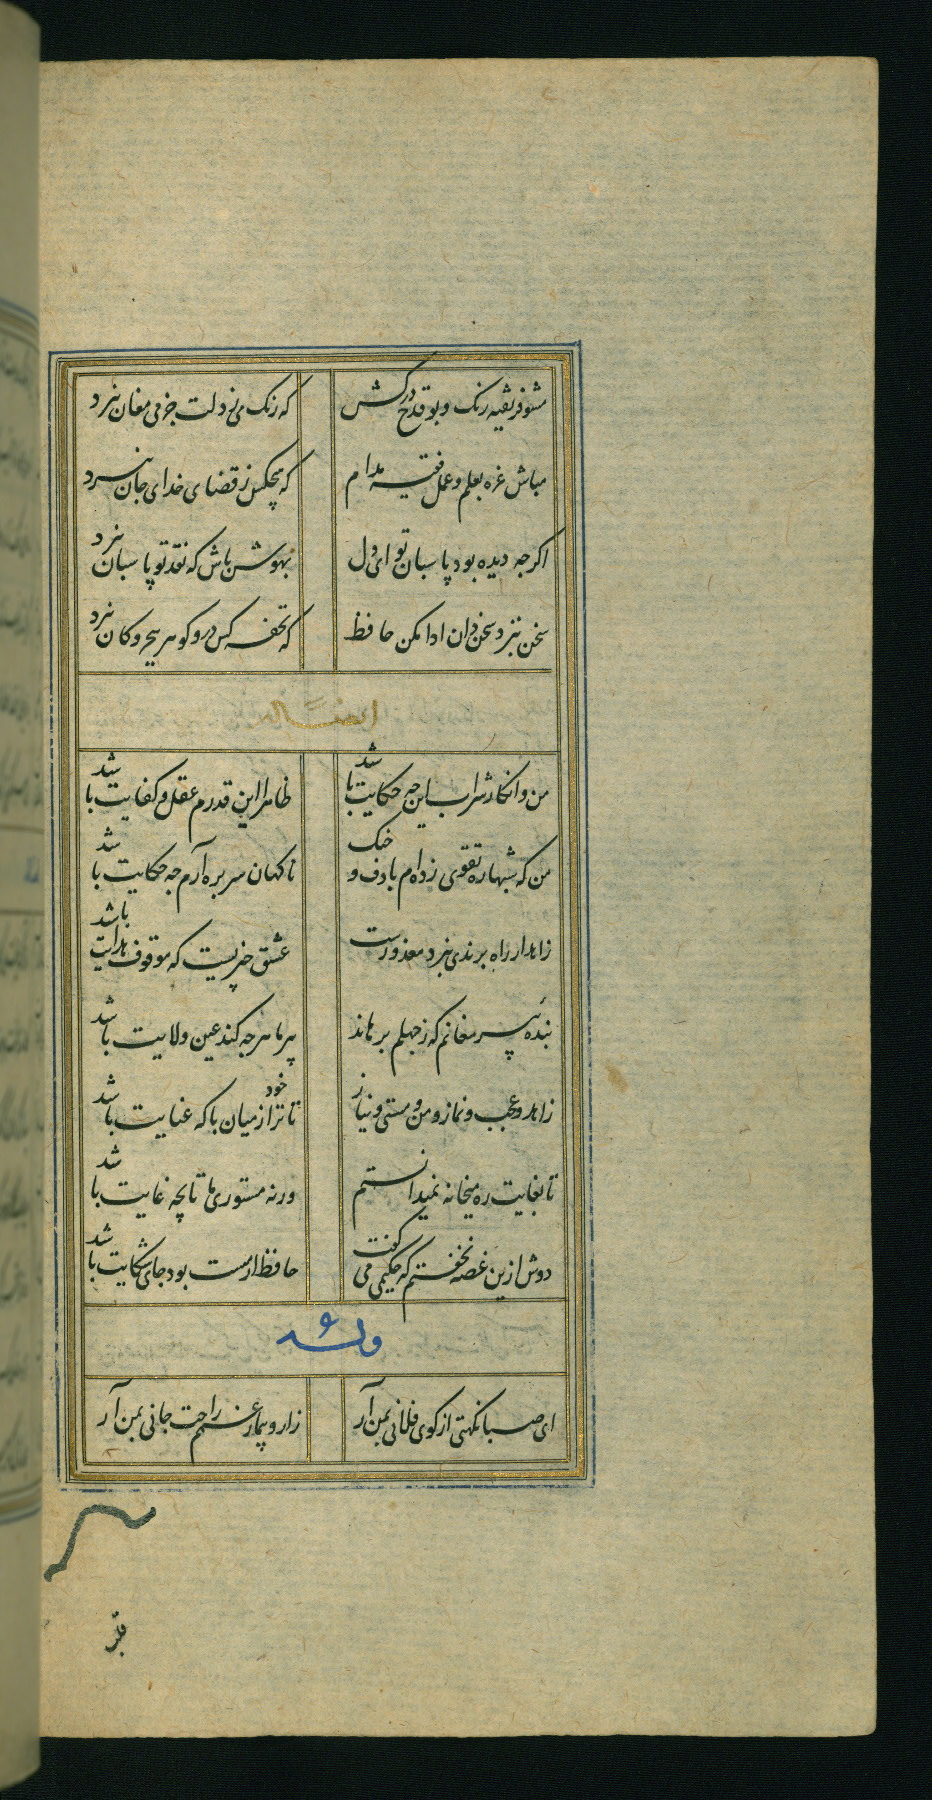 مشو فریفته رنک و بو قدح درکش که زنک غم ز دلت جز می مغان نبرد
مباش غره بعلم و عمل فقیه مدام که هیچکس ز قضای خدای جان نبرد
اکرجه دیده بود پاسبان تو ای دل بهوش باش که نقد تو پاسبان نبرد
سخن بنزد سخن دان ادا مکن حافظ که تحفه کس در و کوهر ببحر و کان نبرد
ایضاله
من و انکار شراب این چه حکایت باشد ظاهرا این قدرم عقل و کفایت باشد
من که شبها ره تقوی زده‌ام با دف و جنک ناکهان سر بره آرم جه حکایت باشد
زاهد ار راه برندی نبرد معذورست عشق خیریست که موقوف هدایت باشد
بنده پیر مغانم که ز جهلم برهاند پیر ما هرجه کند عین ولایت باشد
زاهد و عجب و نماز و من و مستی و نیاز تا ترا خود از میان با که عنایت باشد
تا بغایت ره میخانه نمیدانستم ورنه مستوری ما تا بچه غایت باشد
دوش ازین غصه نخفتم که حکیمی می کفت حافظ ار مست بود جای شکایت باشد
وله
ای صبا نکهتی از کوی فلانی بمن آر زار و بیمار غمم راحت جانی بمن آر
قلب